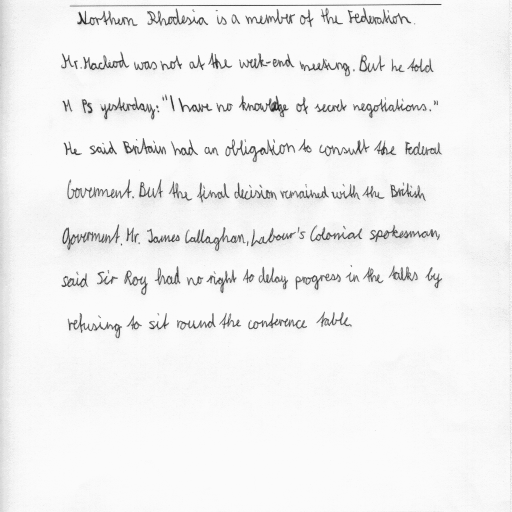 Northern Rhodesia is a member of the Federation.
Mr. Macleod was not at the week-end meeting. But he told
M Ps yesterday: "I have no knowledge of secret negotiations."
He said Britain had an obligation to consult the Federal
Goverment. But the final decision remained with the British
Goverment. Mr. James Callaghan, Labour's Colonial spokesman,
said Sir Roy had no right to delay progress in the talks by
refusing to sit round the conference table.